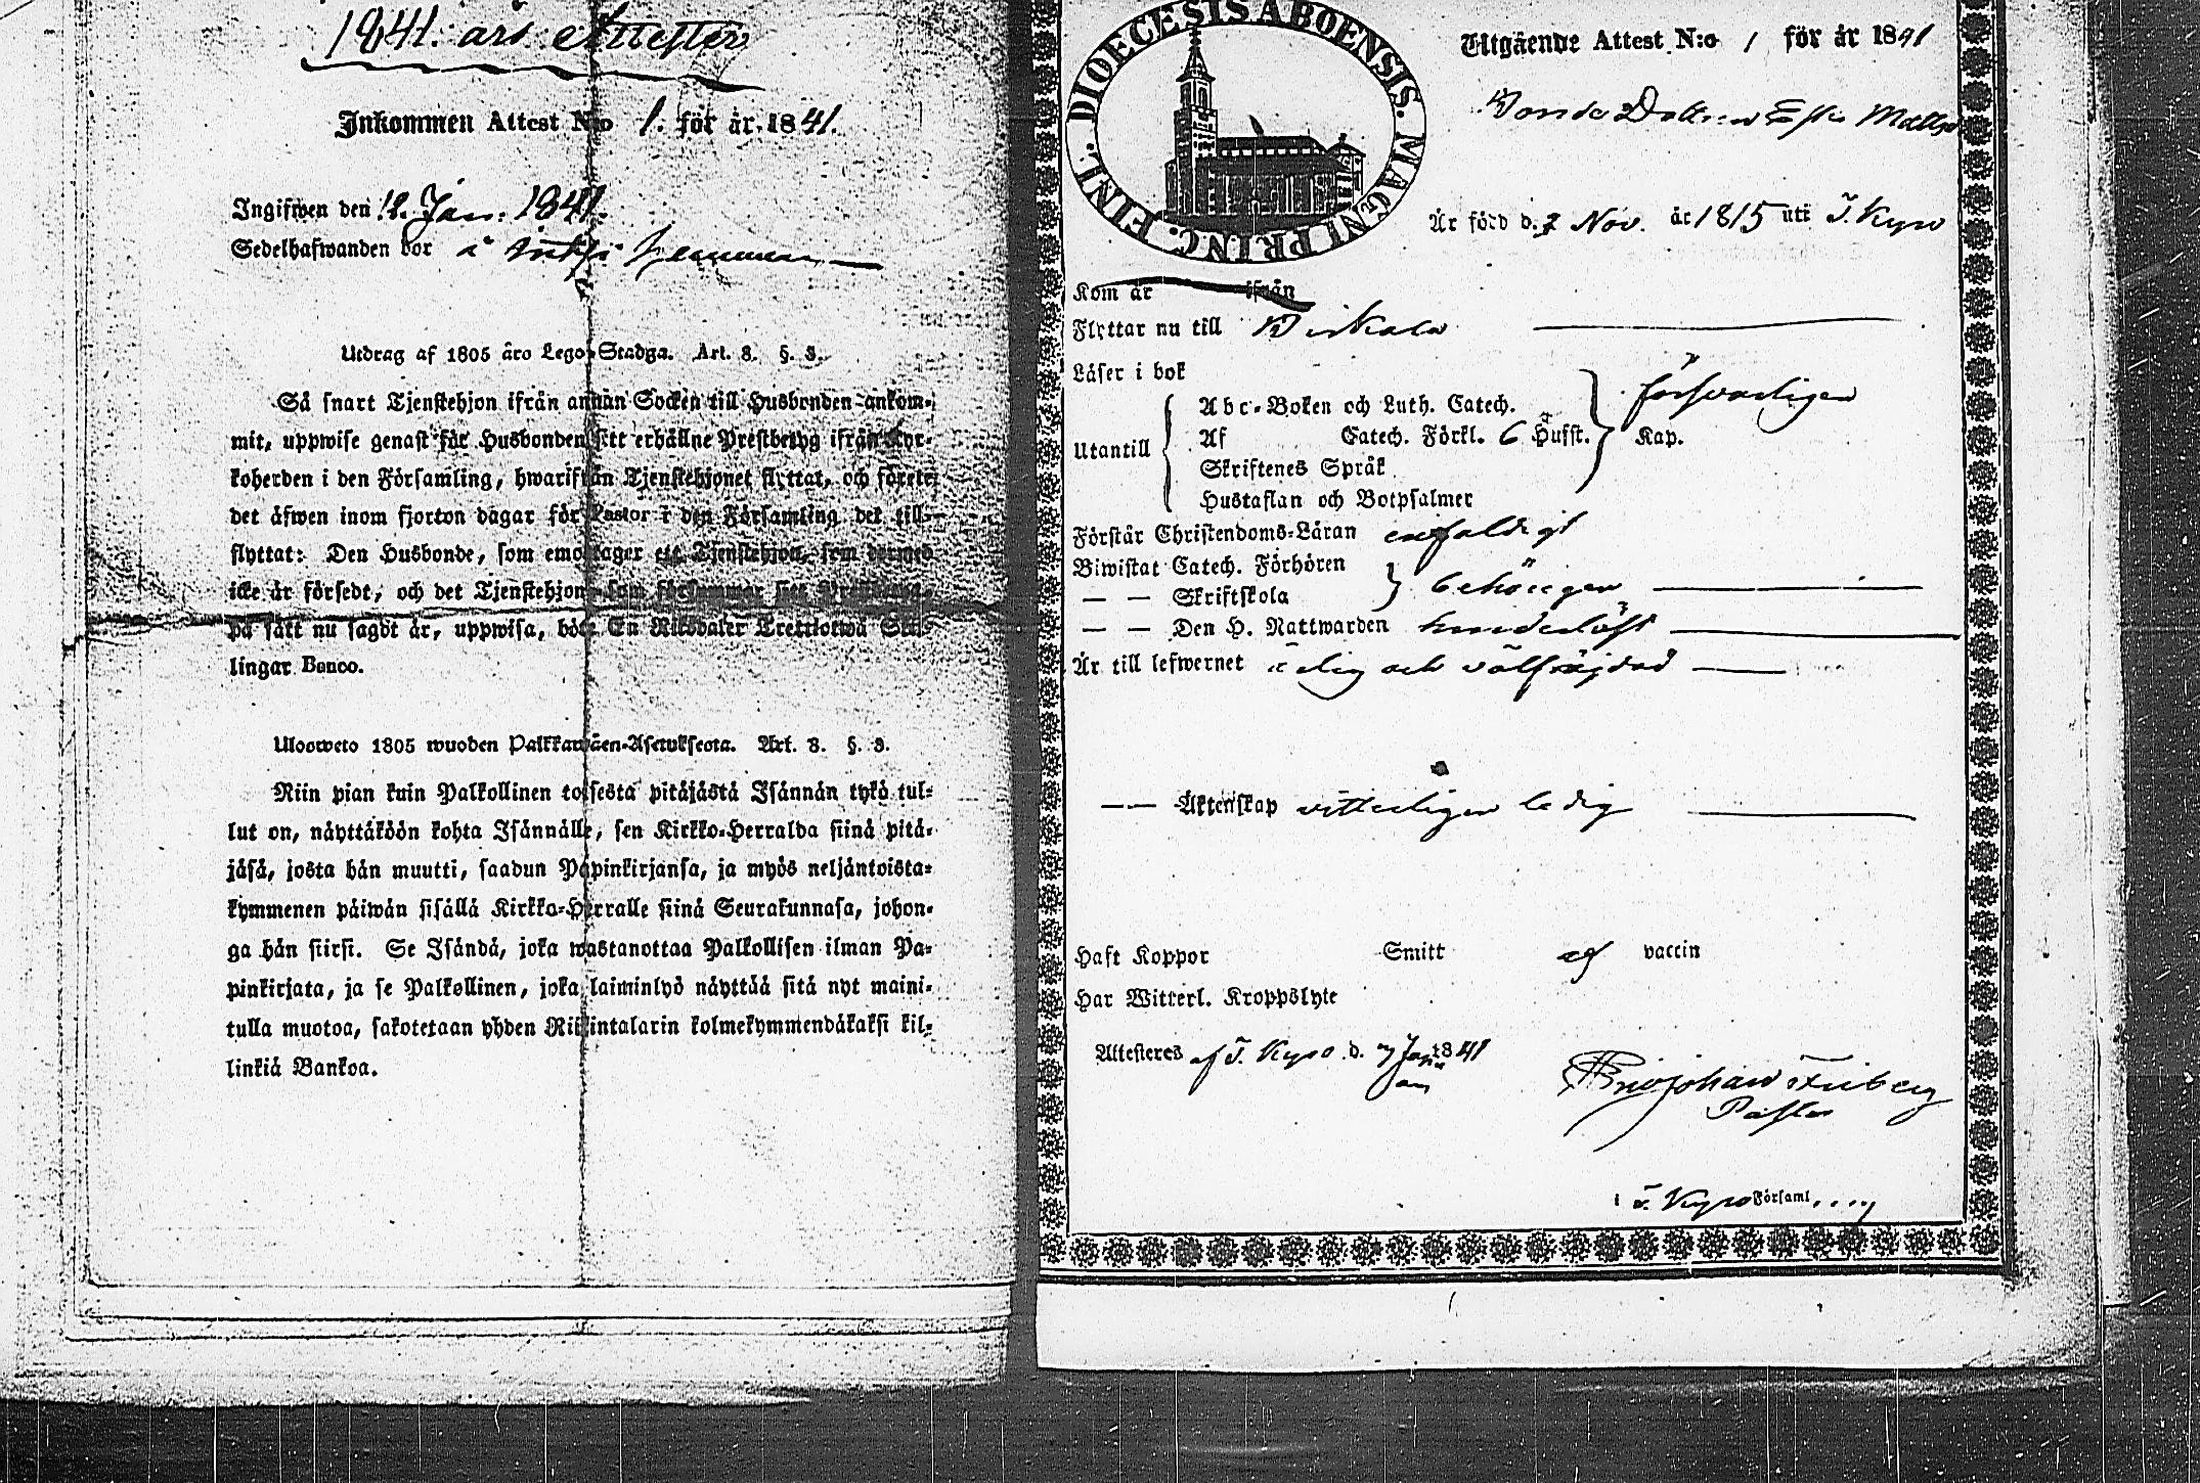 1841. års Attester
Inkommen Attest N:o 1. för år 1841.
Ingifwen den 12. Jan: 1841.
Sedelhafwanden bor å
Utdrag af 1805 åro Lego-Stadga. Art. 8. §. 3.
Så snart Tjenstehjon ifrån annan Socken till Husbonden ankom-
mit, uppwise genast för Husbonden sitt erhållne Prestbetyg ifrån Kyr-
koherden i den Församling, hwarifrån Tjenstehjonet flyttat, och förete
det äfwen inom fjorton dagar för Pastor i den Församling det till-
flyttat: Den Husbonde, som emottager ett Tjenstehjon, som dermed
icke är försedt, och det Tjenstehjon som försummar sitt
på sätt nu sagdt är, uppwisa, böte En Riksdaler Trettiotwå Skil-
lingar Banco.
Ulosweto 1805 wuoden Palkkawäen-Asetuksesta. Art. 8. §. 3.
Niin pian kuin Palkollinen toisesta pitäjästä Isännän tykö tul-
lut on, näyttäköön kohta Isännälle, sen Kirkko-Herralda siinä pitä-
jäsä, josta hän muutti, saadun Papinkirjansa, ja myös neljäntoista-
kymmenen päiwän sisällä Kirkko-Herralle siinä Seurakunnasa, johon-
ga hän siirsi. Se Isändä, joka wastanottaa Palkollisen ilman Pa-
pinkirjata, ja se Palkollinen, joka laiminlyö näyttää sitä nyt maini-
tulla muotoa, sakotetaan yhden Riikintalarin kolmekymmendäkaksi kil-
linkiä Bankoa.
DIOECESIS ABOENSIS. MAGNI PRINC. FINL.
Utgående Attest N:o 1 för år 1841
Bonde Dottren Mattsd
Är född d. 7 Nov. år 1815 uti T. Kyro
Kom år ifrån
Flyttar nu till Birkala
Läser i bok försvarligen
Utantill
Abc-Boken och Luth. Catech.
Af Catech. Förkl. 6 Hufst. Kap.
Skriftenes Språk
Hustaflan och Botpsalmer
Förstår Christendoms-Läran enfaldigt
Biwistat Catech. Förhören
— — Skriftskola behörigen
— — Den H. Nattwarden hinderlöst
Är till lefwernet ärlig och välfräjdad
— — Äktenskap vitterligen ledig
Haft Koppor Smitt af vaccin
Har Witterl. Kroppslyte
Attesteres af T. Kyro d. 7 Januarii 1841
Johan Friberg
Pastor
i T. Kyro Församl.